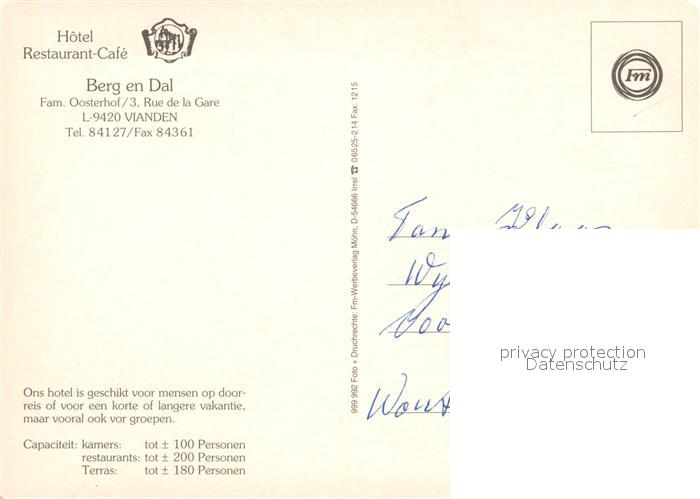 Hôtel
Restaurant-Café
Berg en Dal
Fam. Oosterhof/3, Rue de la Gare
L-9420 VIANDEN
Tel. 84127/Fax 84361
Fm
999 992 Foto + Druckrechte: Fm-Werbeverlag Möhn, D-54666 Irrel ☎ 06525-214 Fax: 1215
Fam
Wy
privacy protection
Datenschutz
Ons hotel is geschikt voor mensen op door-
reis of voor een korte of langere vakantie,
maar vooral ook vor groepen.
Capaciteit: kamers: tot ± 100 Personen
restaurants: tot ± 200 Personen
Terras: tot ± 180 Personen